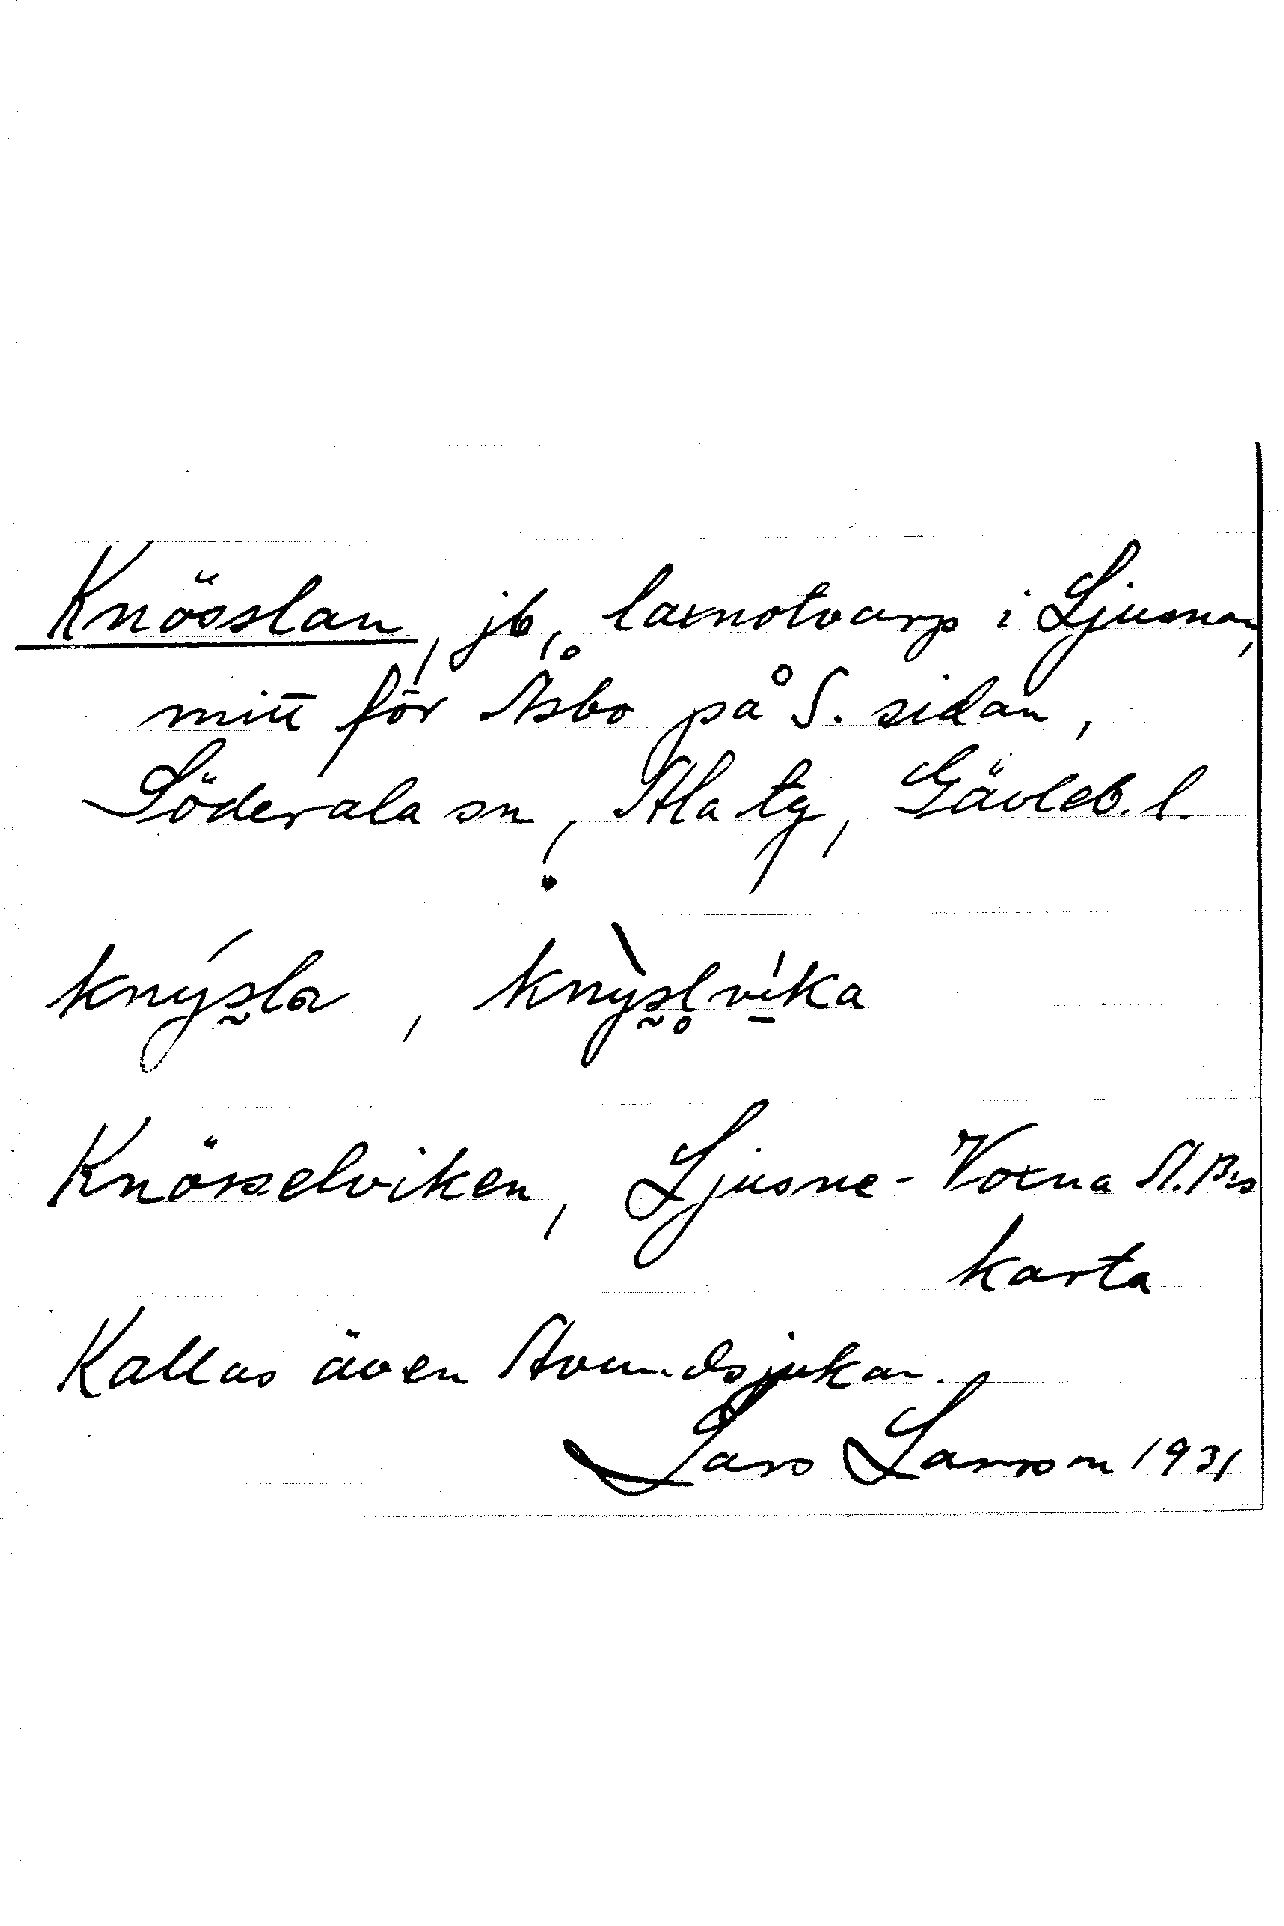 Knösslan, jb, laxnotvarp i Ljusnan,
mitt för Åsbo på S. sidan,
Söderala sn, Ala tg, Gävleb. l.
knýsla, knỳslvika
Knösselviken, Ljusne-Voxna A.B:s
karta
Kallas även Avundsjukan.
Lars Larsson 1931